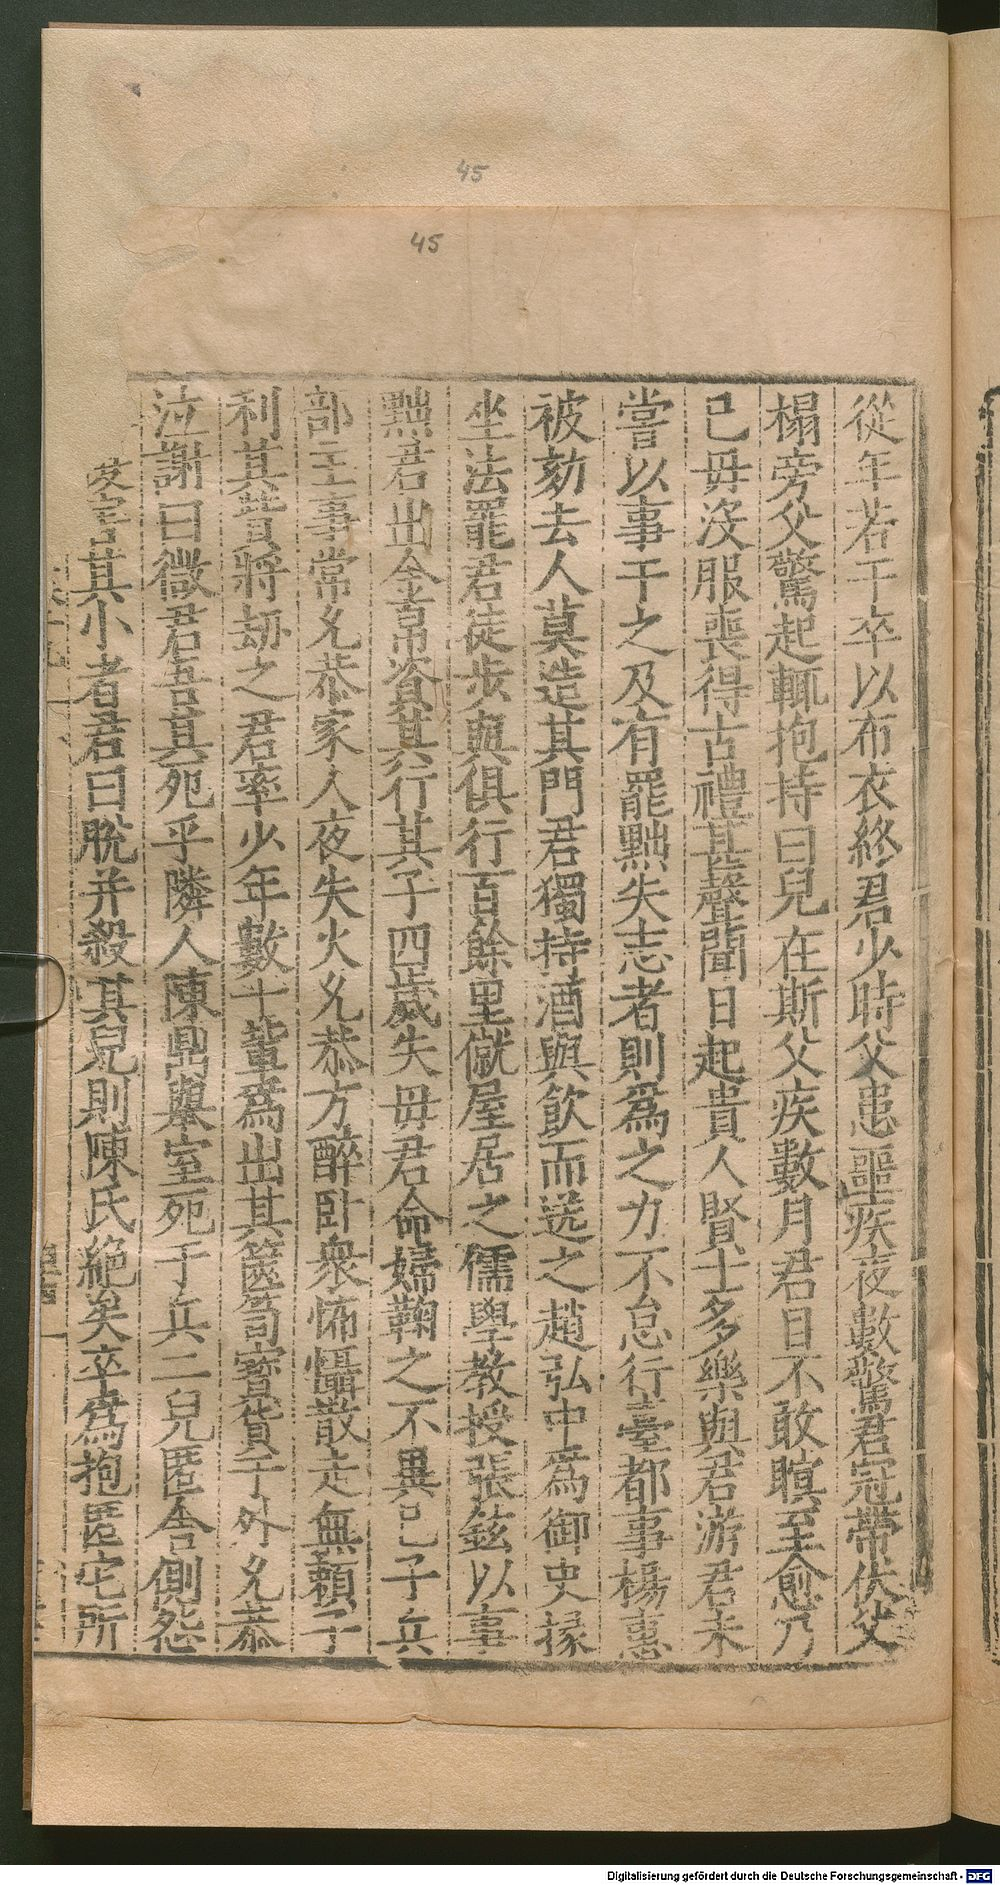 45
45
從年若干卒以布衣終君少時父患噩疾夜數驚君冠帶伏父
榻旁父驚起輒抱持曰兒在斯父疾數月君目不敢瞑至愈乃
已毋没服喪得古禮甚聲聞日起貴人賢士多樂與君游君未
嘗以事干之及有罷黜失志者則爲之力不怠行臺都事楊惠
被劾去人莫造其門君獨持酒與飲而送之趙弘中爲御史掾
坐法罷君徒步與俱行百餘里僦屋居之儒學教授張鉉以事
黜君出金帛資其行其子四歲失毋君命婦鞠之不異己子兵
部主事常允恭家人夜失火允恭方醉卧衆怖懾散走無賴子
利其貲將劫之君率少年數十輩爲出其篋笥寳貨于外允恭
泣謝曰微君吾其死乎隣人陳鼎舉室死于兵二兒匿舍側怨
家言其小者君曰脱并殺其兒則陳氏絶矣卒爲抱匿宅所
Digitalisierung gefördert durch die Deutsche Forschungsgemeinschaft - DFG